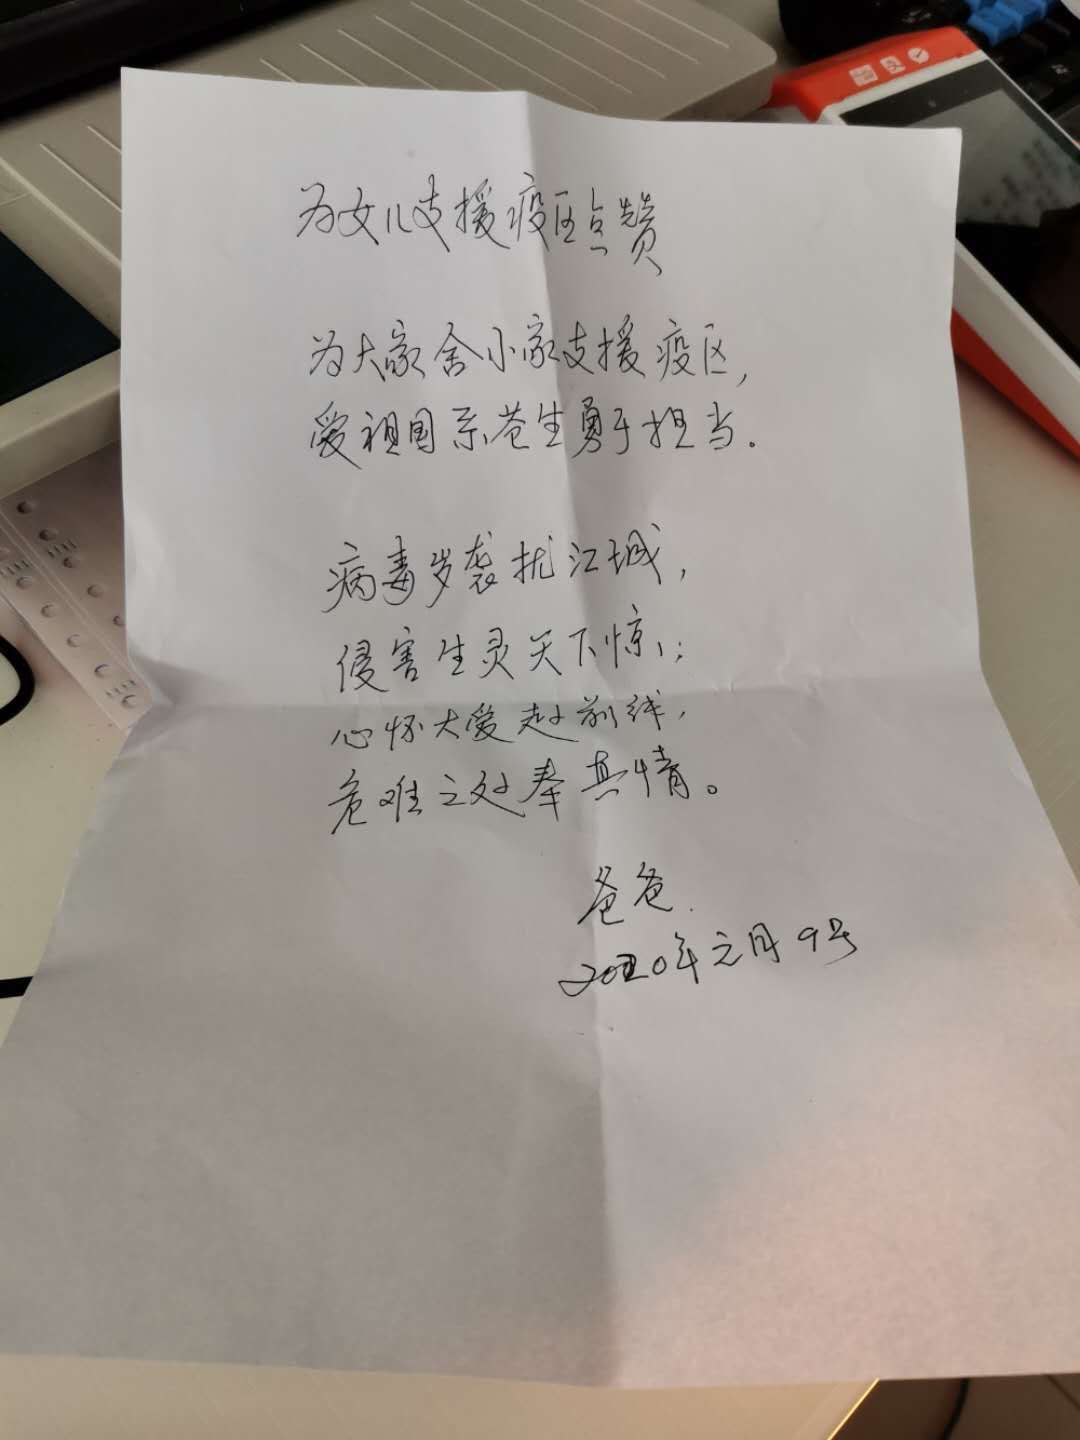 为女儿支援疫区点赞
为大家舍小家支援疫区，
爱祖国系苍生勇于担当.
病毒岁袭扰江城，
侵害生灵天下惊；
心怀大爱赴前线，
危难之处奉真情。
爸爸.
2020年元月9号